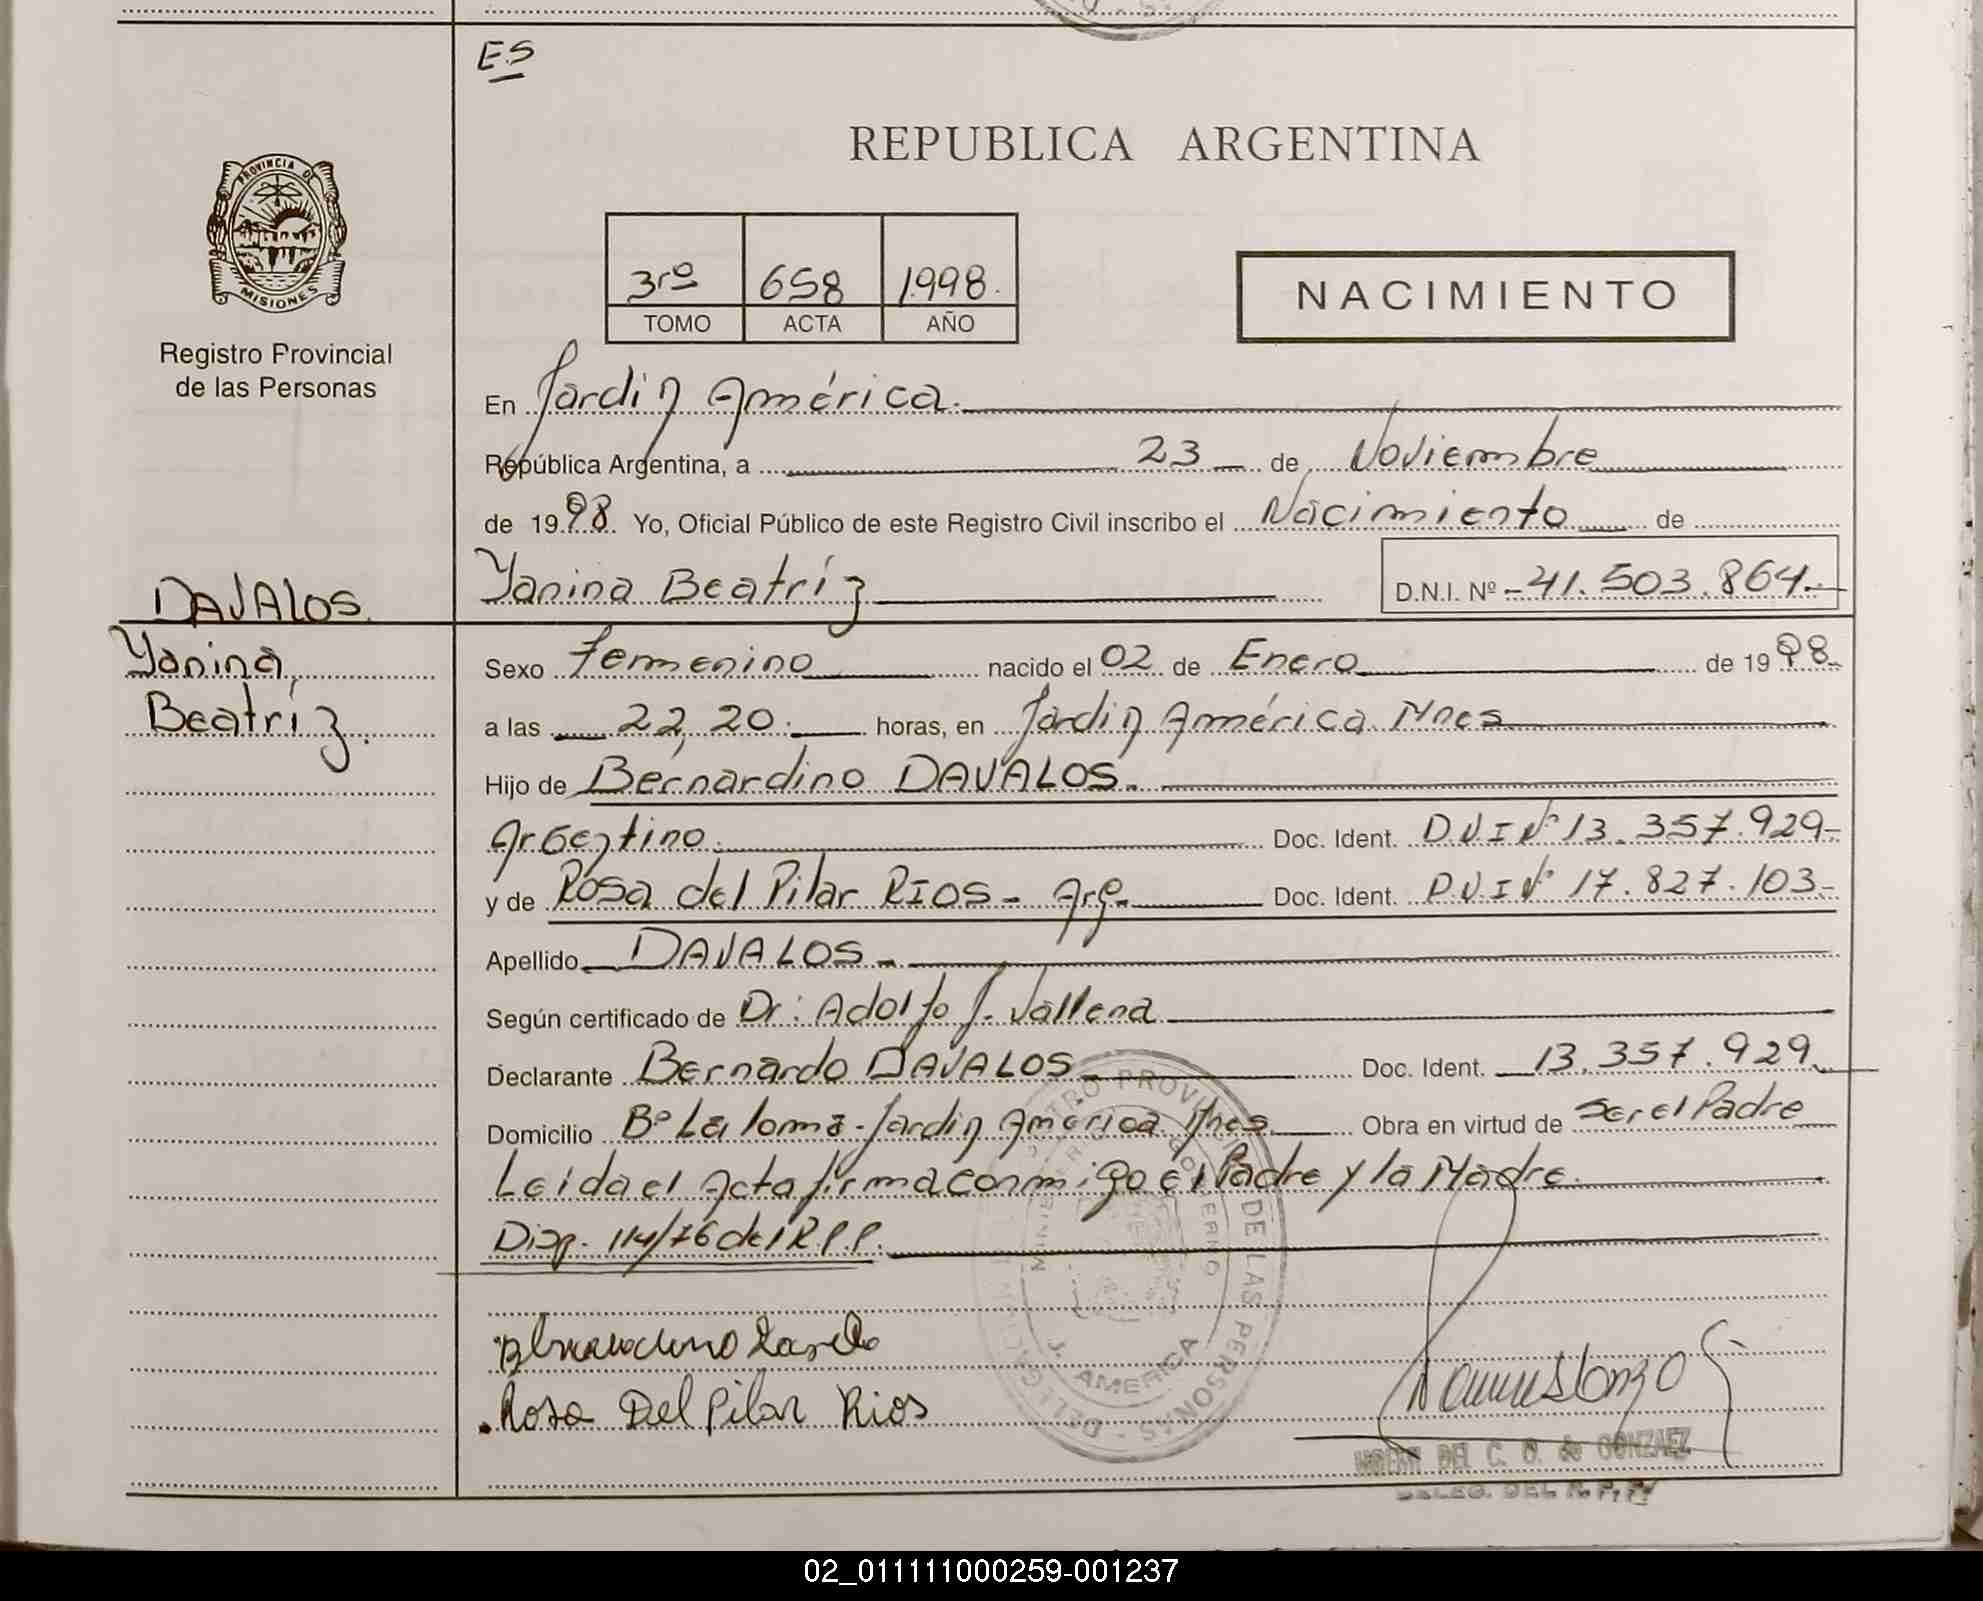 E.S
REPUBLICA ARGENTINA
PROVINCIA DE
MISIONES
Registro Provincial
de las Personas
3ro 658 1998.
TOMO ACTA AÑO
NACIMIENTO
En Jardin América.
República Argentina, a 23 de Noviembre
de 1998. Yo, Oficial Público de este Registro Civil inscribo el Nacimiento de
Yanina Beatríz D.N.I. Nº 41.503.864.-
DAVALOS.
Yanina
Beatríz.
Sexo Femenino nacido el 02 de Enero de 1998.
a las 22,20. horas, en Jardin América Mnes
Hijo de Bernardino DAVALOS.
Argentino. Doc. Ident. D.N.I Nº 13.357.929-
y de Rosa del Pilar RIOS - Arg. Doc. Ident. D.N.I Nº 17.827.103-
Apellido DAVALOS.-
Según certificado de Dr: Adolfo J. Vallena
Declarante Bernardo DAVALOS Doc. Ident. 13.357.929.
Domicilio Bº La loma - Jardin América Mnes. Obra en virtud de Ser el Padre
Leida el Acta firma conmigo el Padre y la Madre.
Disp. 114/76 del R.P.P.
Rosa Del Pilar Rios
PROVINCIAL DE LAS PERSONAS - DELEGACION
J. AMERICA
DEL C. D. de GONZALEZ
DELEG. DEL R.P.P.
02_011111000259-001237